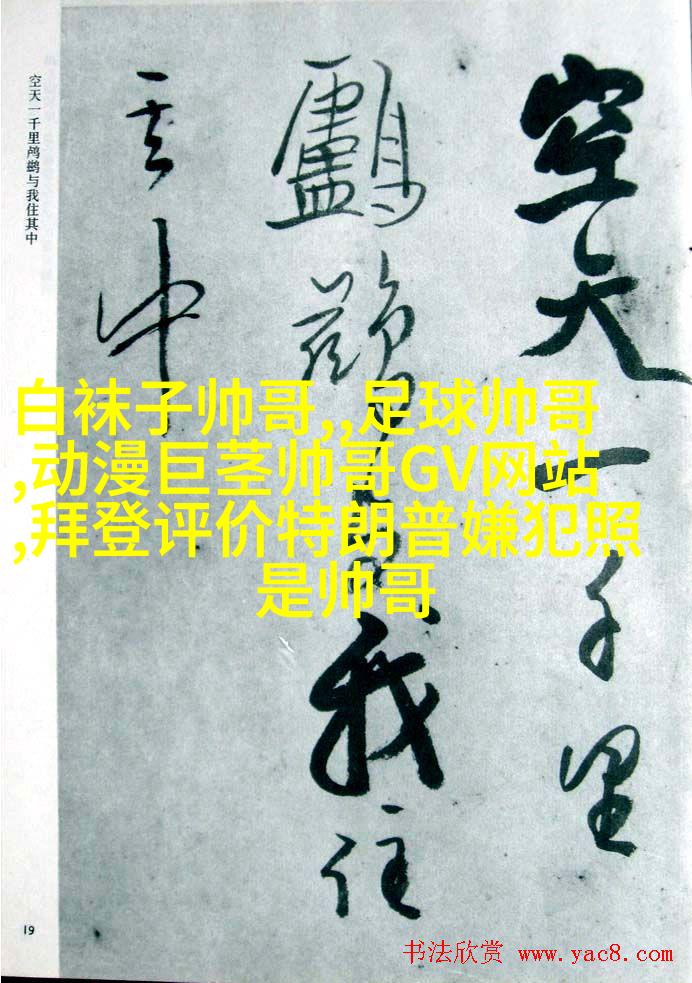 空天一千里
鸕鶿与我住
其中
空天一千里鸬鹚与我住其中
白袜子帅哥,,足球帅哥
,动漫巨茎帅哥GV网站
,拜登评价特朗普嫌犯照
是帅哥
19
书法欣赏 www.yac8.com